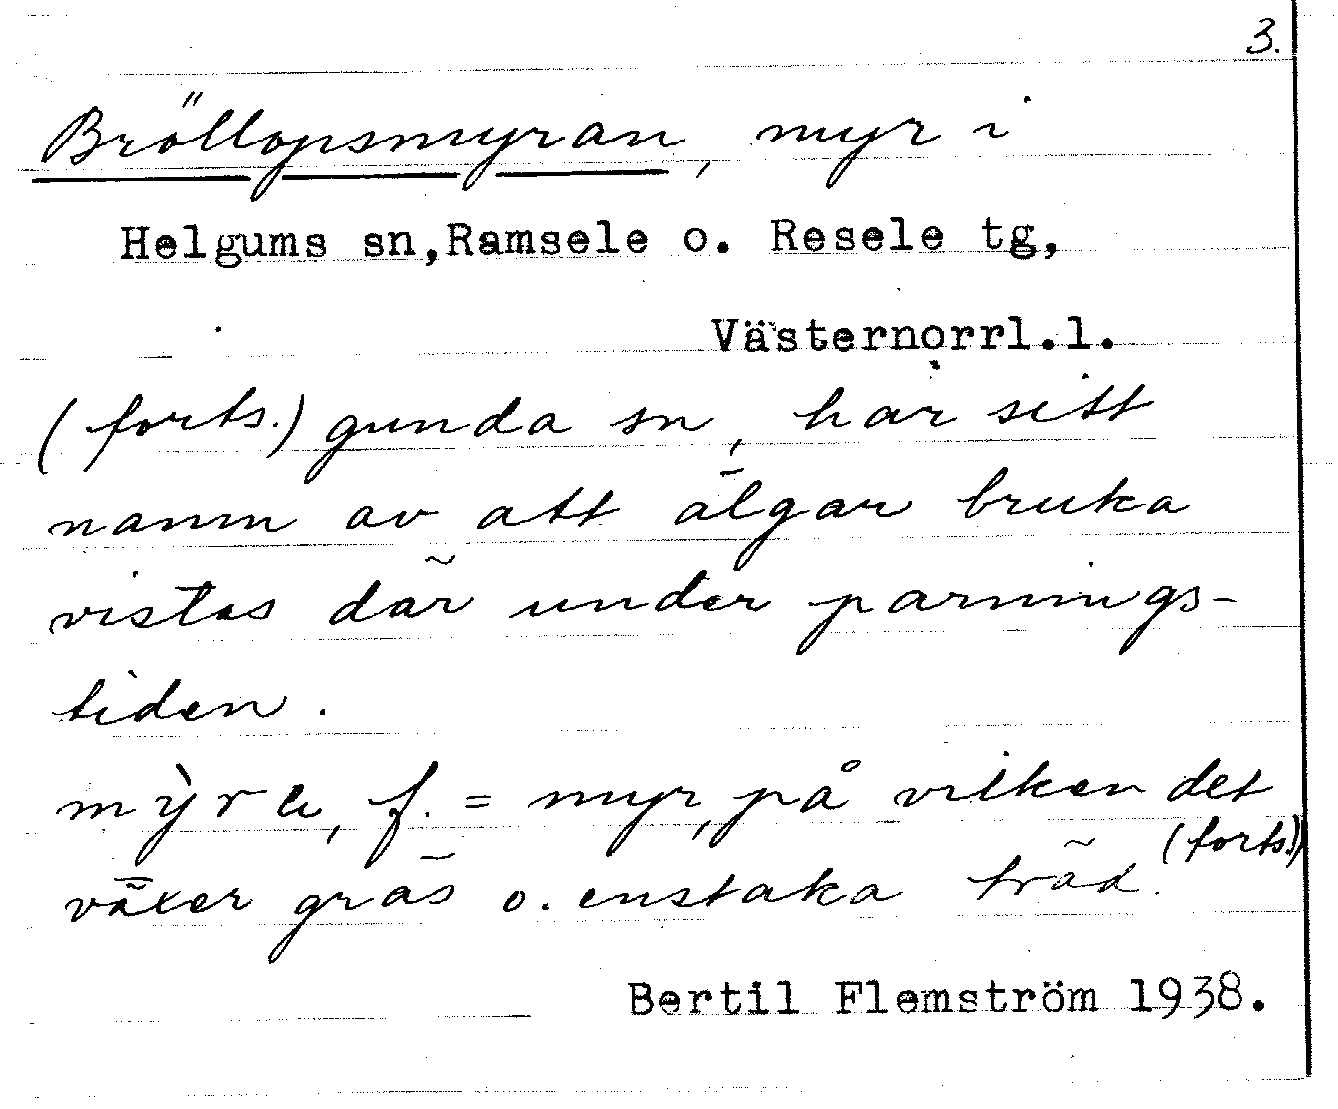 3.
Bröllopsmyran, myr i
Helgums sn, Ramsele o. Resele tg,
Västernorrl.l.
(forts.) gunda sn, har sitt
namn av att älgar bruka
vistas där under parnings-
tiden.
f. = myr, på vilken det
växer gräs o. enstaka träd. (forts.)
Bertil Flemström 1938.